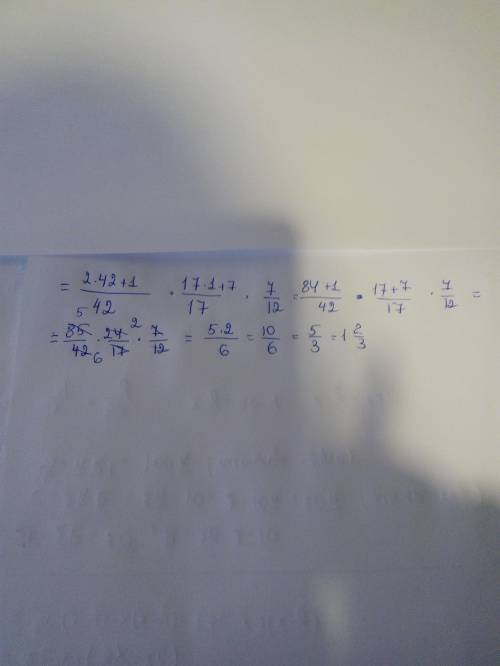 = (2·42+1)/42 · (17·1+7)/17 · 7/12 = (84+1)/42 · (17+7)/17 · 7/12 =
5
= 85/42 · 24/17 · 7/12 = (5·2)/6 = 10/6 = 5/3 = 1 2/3
2
6